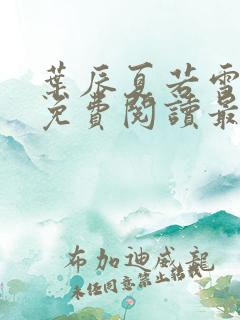 葉辰夏若雪
免費閱讀最
布加迪威龍
未经同意禁止转载